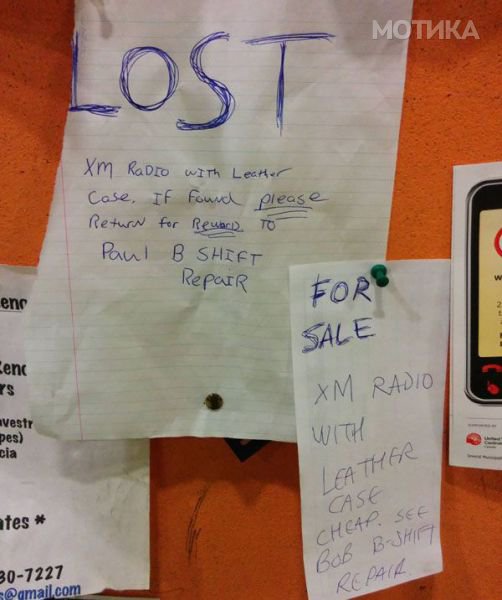 МОТИКА
LOST
XM RADIO WITH Leather
Case. If found please
Return for Reward TO
Paul B SHIFT
Repair
FOR
SALE
XM RADIO
WITH
LEATHER
CASE
CHEAP. SEE
BOB B-SHIFT
REPAIR.
rs
cia
ates *
30-7227
s@gmail.com
SUPPORTED BY
United